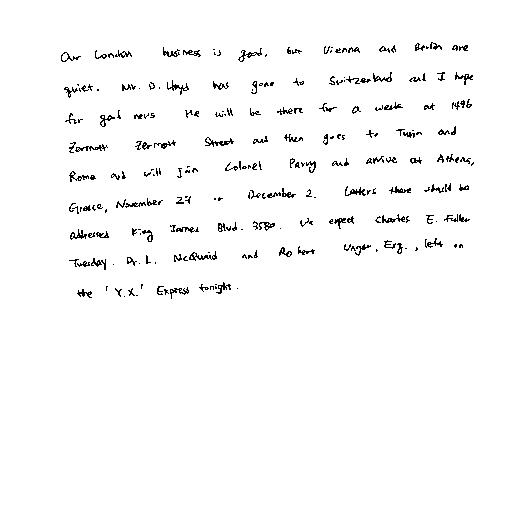 Our London business is good, but Vienna and Berlin are
quiet. Mr. D. Lloyd has gone to Switzerland and I hope
for good news He will be there for a week at 1496
Zermott Zermott Street and then goes to Turin and
Rome and will join Colonel Parry and arrive at Athens,
Greece, November 27 or December 2. Letters there should be
addressed King James Blvd. 3580. We expect Charles E. Fuller
Tuesday. Dr. L. McQuaid and Robert Unger, Esq., left on
the 'Y.X.' Express tonight.